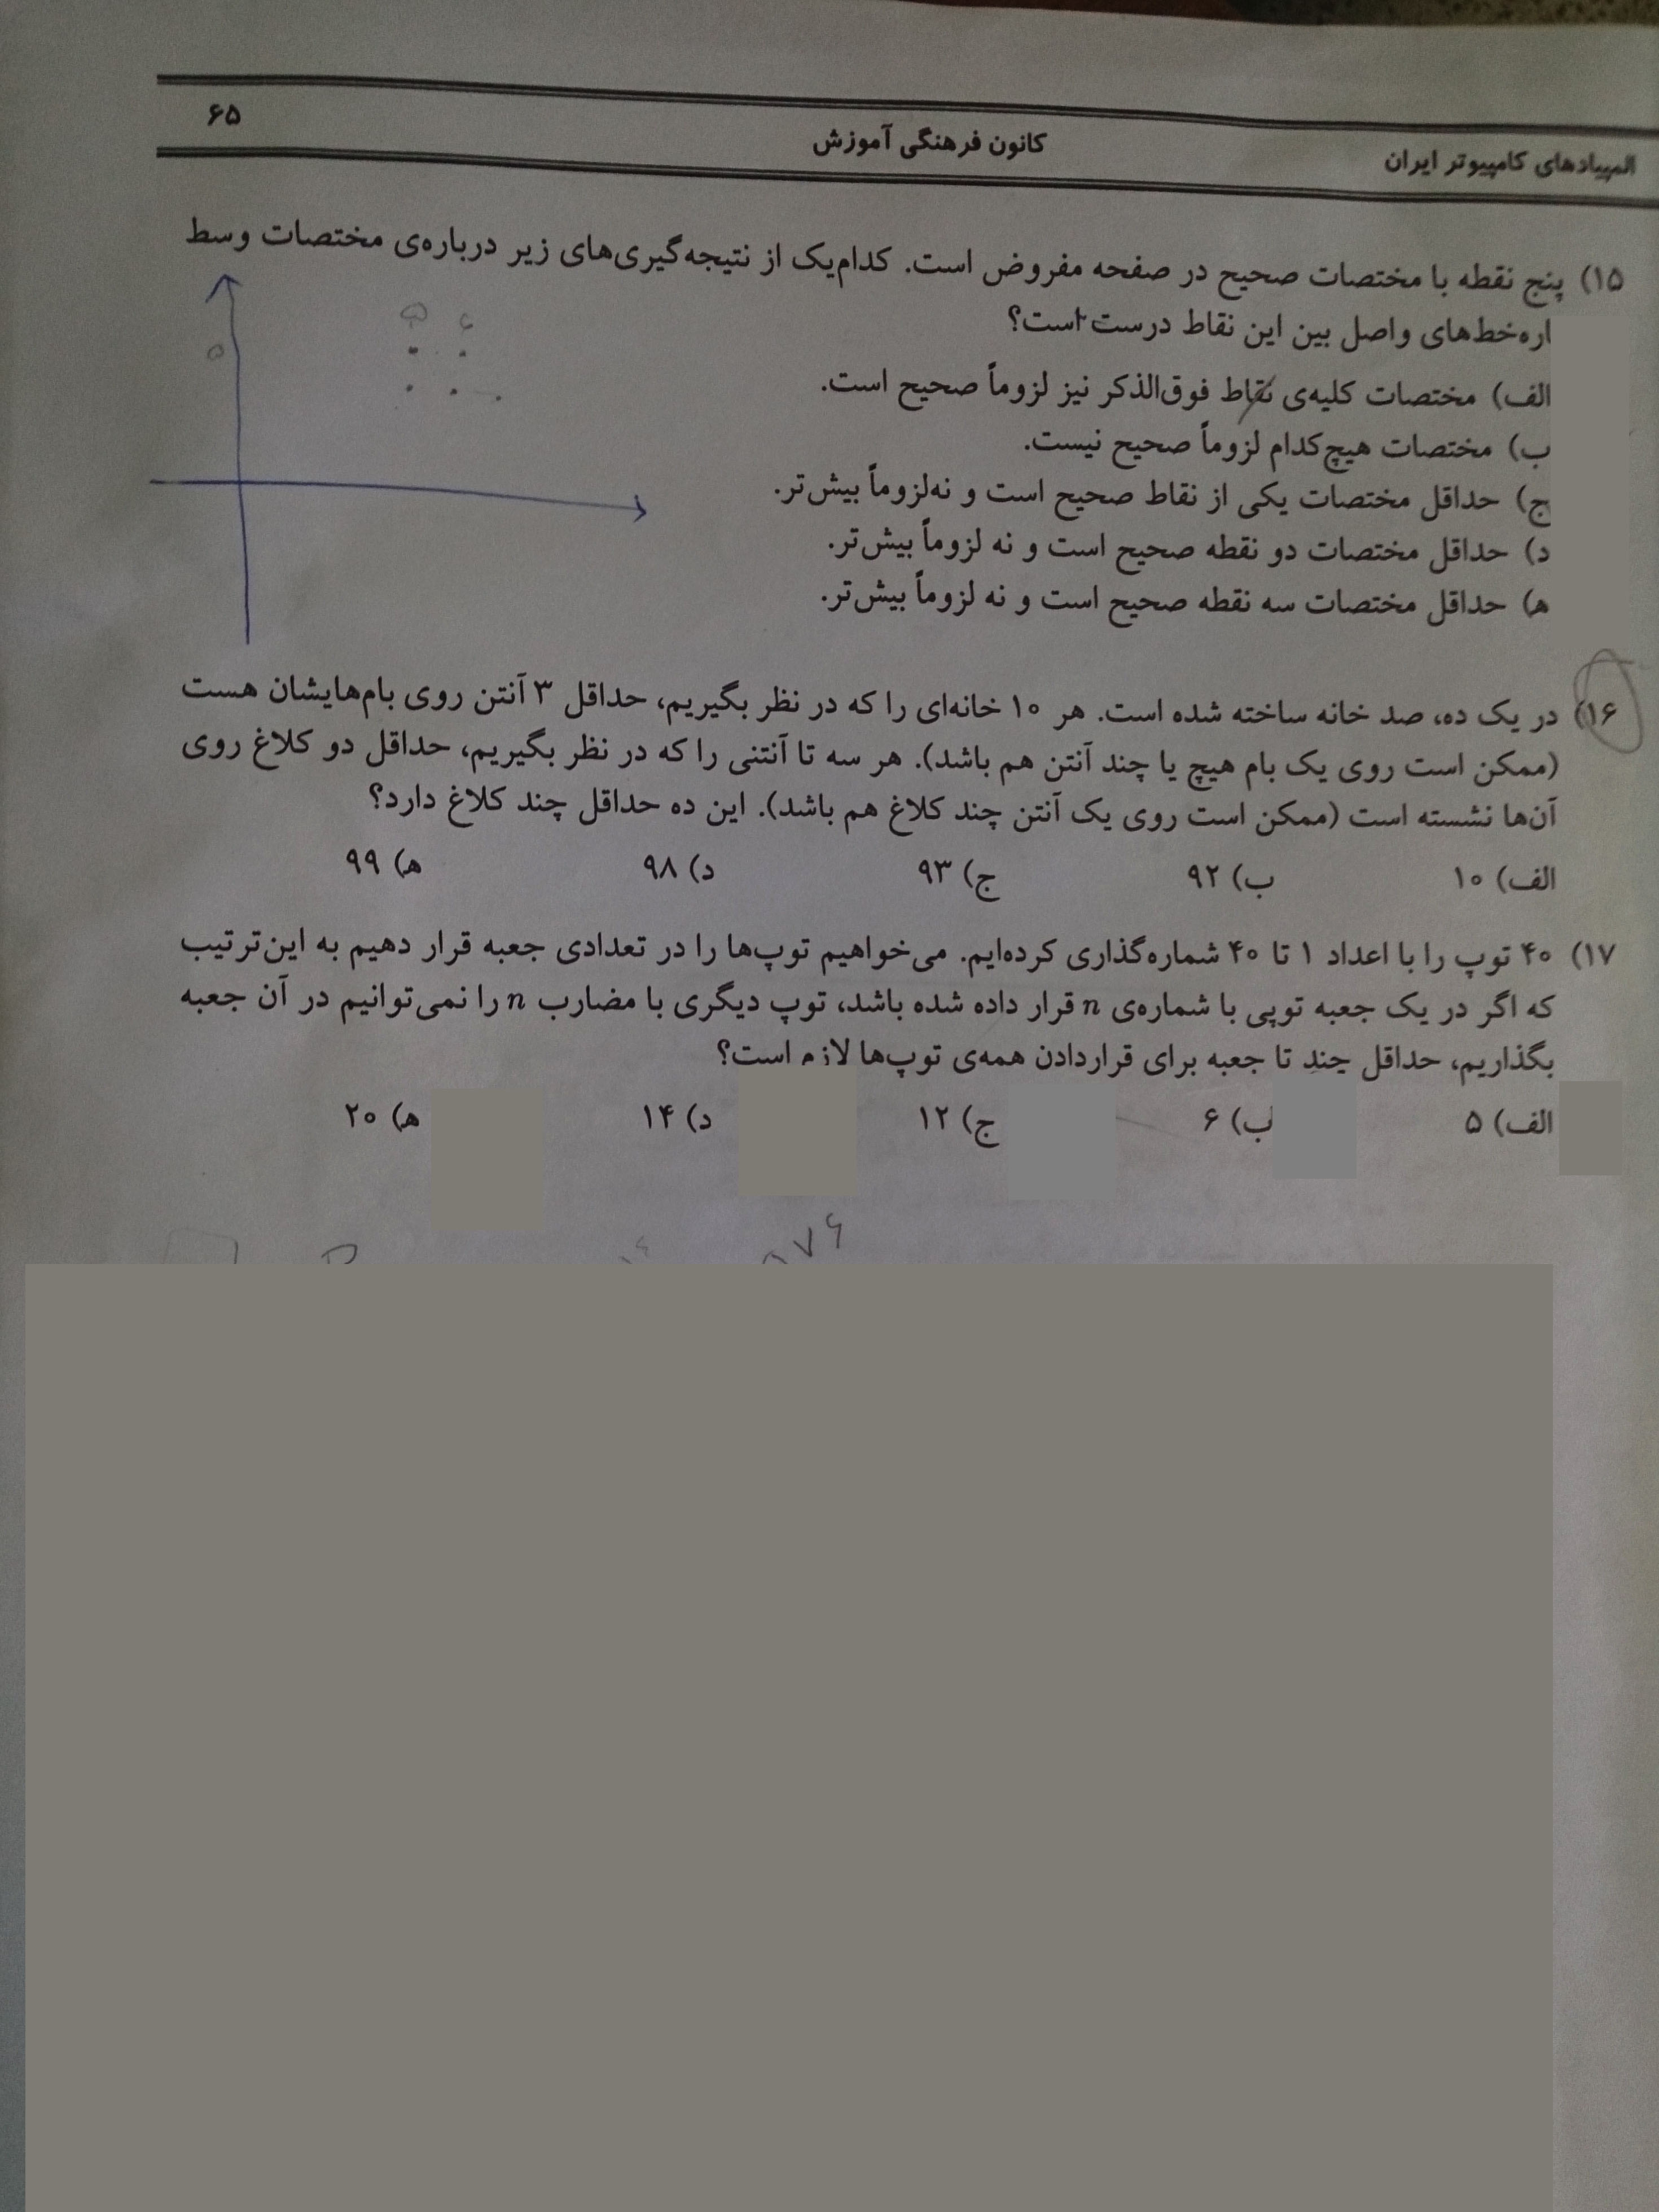 المپیادهای کامپیوتر ایران
کانون فرهنگی آموزش
۶۵
۱۵) پنج نقطه با مختصات صحیح در صفحه مفروض است. کدام‌یک از نتیجه‌گیری‌های زیر درباره‌ی مختصات وسط
اره‌خط‌های واصل بین این نقاط درست است؟
الف) مختصات کلیه‌ی نقاط فوق‌الذکر نیز لزوماً صحیح است.
ب) مختصات هیچ‌کدام لزوماً صحیح نیست.
ج) حداقل مختصات یکی از نقاط صحیح است و نه‌لزوماً بیش‌تر.
د) حداقل مختصات دو نقطه صحیح است و نه لزوماً بیش‌تر.
ه) حداقل مختصات سه نقطه صحیح است و نه لزوماً بیش‌تر.
۱۶) در یک ده، صد خانه ساخته شده است. هر ۱۰ خانه‌ای را که در نظر بگیریم، حداقل ۳ آنتن روی بام‌هایشان هست
(ممکن است روی یک بام هیچ یا چند آنتن هم باشد). هر سه تا آنتنی را که در نظر بگیریم، حداقل دو کلاغ روی
آن‌ها نشسته است (ممکن است روی یک آنتن چند کلاغ هم باشد). این ده حداقل چند کلاغ دارد؟
الف) ۱۰ ب) ۹۲ ج) ۹۳ د) ۹۸ ه) ۹۹
۱۷) ۴۰ توپ را با اعداد ۱ تا ۴۰ شماره‌گذاری کرده‌ایم. می‌خواهیم توپ‌ها را در تعدادی جعبه قرار دهیم به این‌ترتیب
که اگر در یک جعبه توپی با شماره‌ی n قرار داده شده باشد، توپ دیگری با مضارب n را نمی‌توانیم در آن جعبه
بگذاریم، حداقل چند تا جعبه برای قراردادن همه‌ی توپ‌ها لازم است؟
الف) ۵ ب) ۶ ج) ۱۲ د) ۱۴ ه) ۲۰